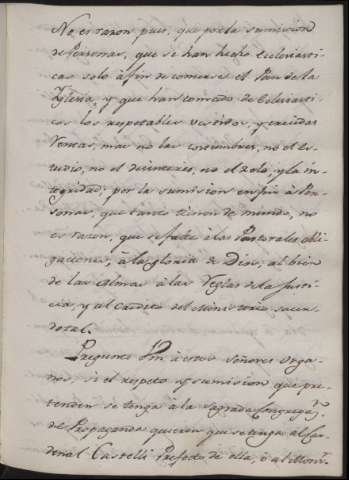 No es razon pues, que por la sumision
de Personas, que se han hecho Eclesiasti-
cas solo à fin de comerse el Pan de la
Iglesia, y que han tomado de Eclesiasti-
cos los respetables vestidos, y crecidas
Rentas, mas no las costumbres, no el es-
tudio, no el desinteres, no el zelo, y la in-
tegridad; por la sumision en fin à Per-
sonas, que tanto tienen de mundo, no
es razon, que se falte à las Pastorales obli-
gaciones, à la gloria de Dios, al bien
de las almas à las Reglas de la Justi-
cia, y al Credito del Ministerio sacer-
dotal.
Pregunto Yo à estos Señores Urga-
nos, si el respeto y sumision que pre-
tenden se tenga à la sagrada Congregn.
de Propaganda quieren que se tenga al Car-
denal Castelli Prefecto de ella, ò al Monr.